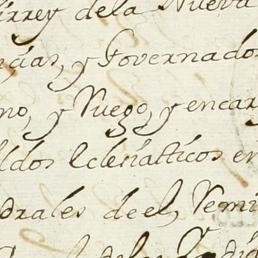 irrey dela Nueva
cias, y Governado
no, y Ruego, y encar
ldos Eclesiasticos en
drales de el, Semi